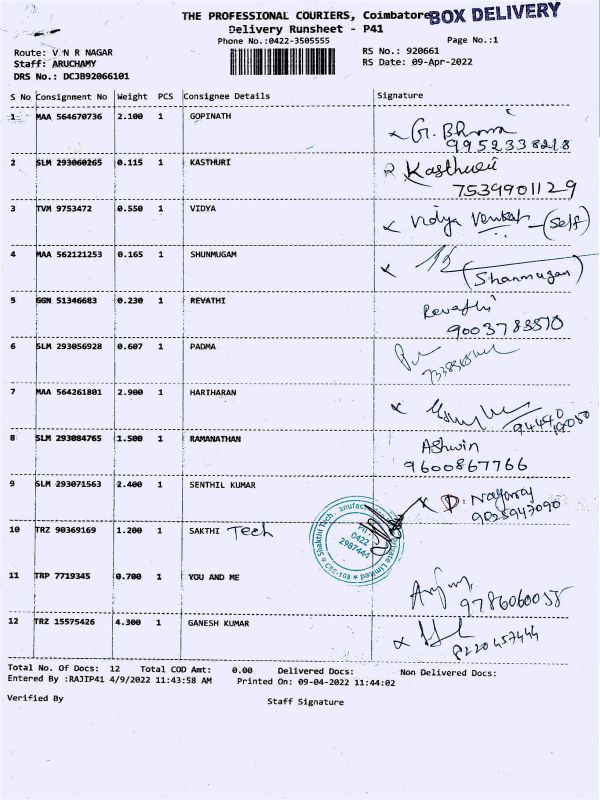 THE PROFESSIONAL COURIERS, Coimbatore BOX DELIVERY
Delivery Runsheet - P41
Phone No.:0422-3505555 Page No.:1
Route: V N R NAGAR RS No.: 920661
Staff: ARUCHAMY RS Date: 09-Apr-2022
DRS No.: DCJB92066101
S No Consignment No Weight PCS Consignee Details Signature
1 MAA 564670736 2.100 1 GOPINATH
9952338218
2 SLM 293060265 0.115 1 KASTHURI Kasthuri
7539901129
3 TVM 9753472 0.550 1 VIDYA Vidya Venkat (self)
4 MAA 562121253 0.165 1 SHUNMUGAM
(Shanmugam)
5 GGN 51346683 0.230 1 REVATHI Revathi
9003783510
6 SLM 293056928 0.607 1 PADMA
7 MAA 564261801 2.900 1 HARIHARAN
8 SLM 293084765 1.500 1 RAMANATHAN Ashwin
9600867766
9 SLM 293071563 2.400 1 SENTHIL KUMAR D. Nagaraj
10 TRZ 90369169 1.200 1 SAKTHI Tech
0422
2987444
11 TRP 7719345 0.700 1 YOU AND ME
12 TRZ 15575426 4.300 1 GANESH KUMAR
8220457444
Total No. Of Docs: 12 Total COD Amt: 0.00 Delivered Docs: Non Delivered Docs:
Entered By :RAJIP41 4/9/2022 11:43:58 AM Printed On: 09-04-2022 11:44:02
Verified By Staff Signature